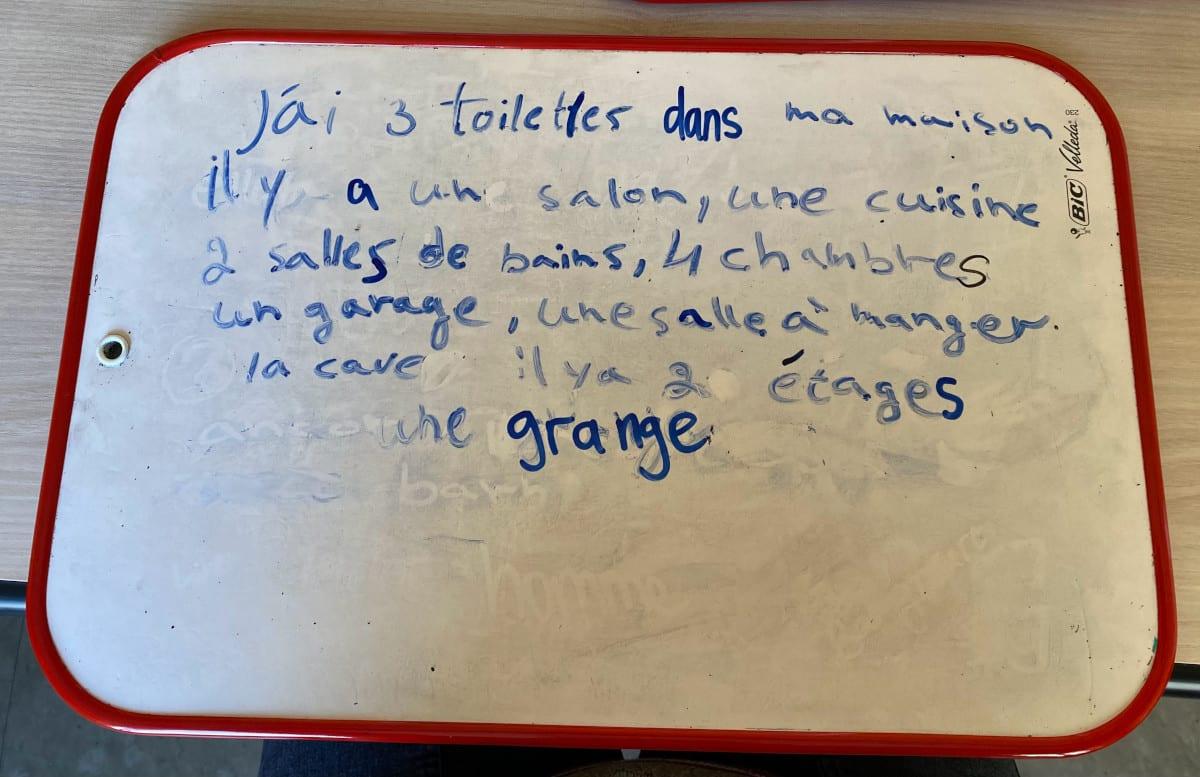 J'ai 3 toilettes dans ma maison
il y a un salon, une cuisine
2 salles de bains, 4 chambres
un garage, une salle à manger.
la cave il y a 2 étages
une grange
barn
BIC Velleda